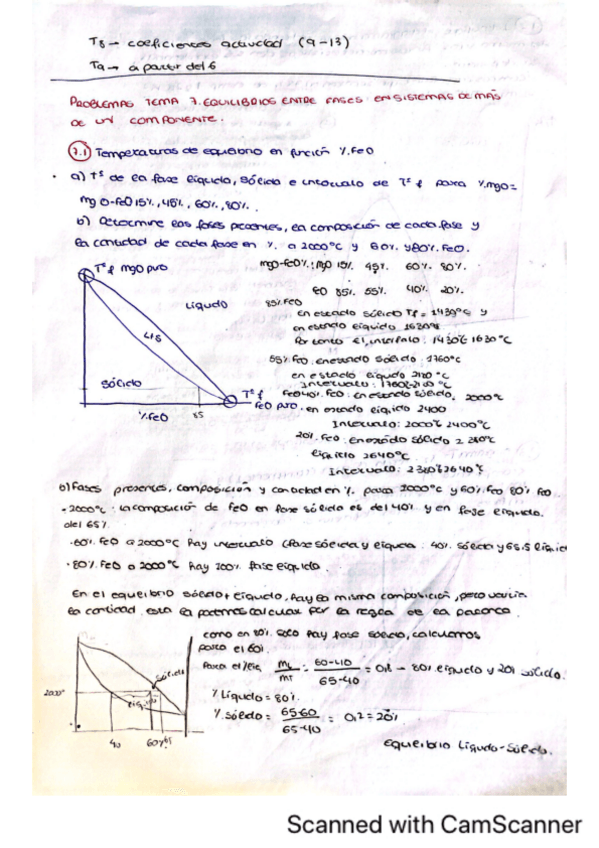 T8 → coeficientes actividad (9-13)
T9 → a partir del 6
PROBLEMAS TEMA 7. EQUILIBRIOS ENTRE FASES EN SISTEMAS DE MÁS
DE UN COMPONENTE.
7.1 Temperaturas de equilibrio en función % FeO
a) Tª de la fase líquida, sólida e intervalo de Tª f para % MgO =
MgO-FeO 15%, 45%, 60%, 80%.
b) Determine las fases presentes, la composición de cada fase y
la cantidad de cada fase en % a 2000°C y 60% y 80% FeO.
Tª f MgO puro
MgO-FeO%: MgO 15% 45% 60% 80%
FeO 85% 55% 40% 20%
Líquido
85% FeO
en estado sólido Tf = 1430°C y
en estado líquido 1630°C
Por tanto el intervalo: 1430°C 1630°C
L+S
55% FeO: en estado sólido: 1760°C
en estado líquido 2180°C
Intervalo: 1760°C-2180°C
sólido
FeO 40% FeO: en estado sólido, 2000°C
Tª f
FeO puro
en estado líquido 2400
% FeO
85
Intervalo: 2000°C 2400°C
20% FeO: En estado sólido = 2380°C
líquido 2640°C
Intervalo: 2380°C 2640°C
b) Fases presentes, composición y cantidad en % para 2000°C y 60% FeO 80% FeO
- 2000°C: la composición de FeO en fase sólida es del 40% y en fase líquida.
del 65%
· 60% FeO a 2000°C hay intervalo (fase sólida y líquida: 40% sólido y 65.5 líquid
· 80% FeO a 2000°C hay 100% fase líquida.
En el equilibrio sólido + líquido, hay la misma composición, pero varía
la cantidad esta la podemos calcular por la regla de la palanca.
como en 80% solo hay fase
calculamos
para el 60%
Para el líq. mL/mT = 60-40/65-40 = 0,8 → 80% líquido y 20% sólido.
% Líquido = 80%
% Sólido = 65-60/65-40 = 0,2 = 20%
sólido
líquido
2000°
40
60%
65
Equilibrio Líquido-Sólido.
Scanned with CamScanner